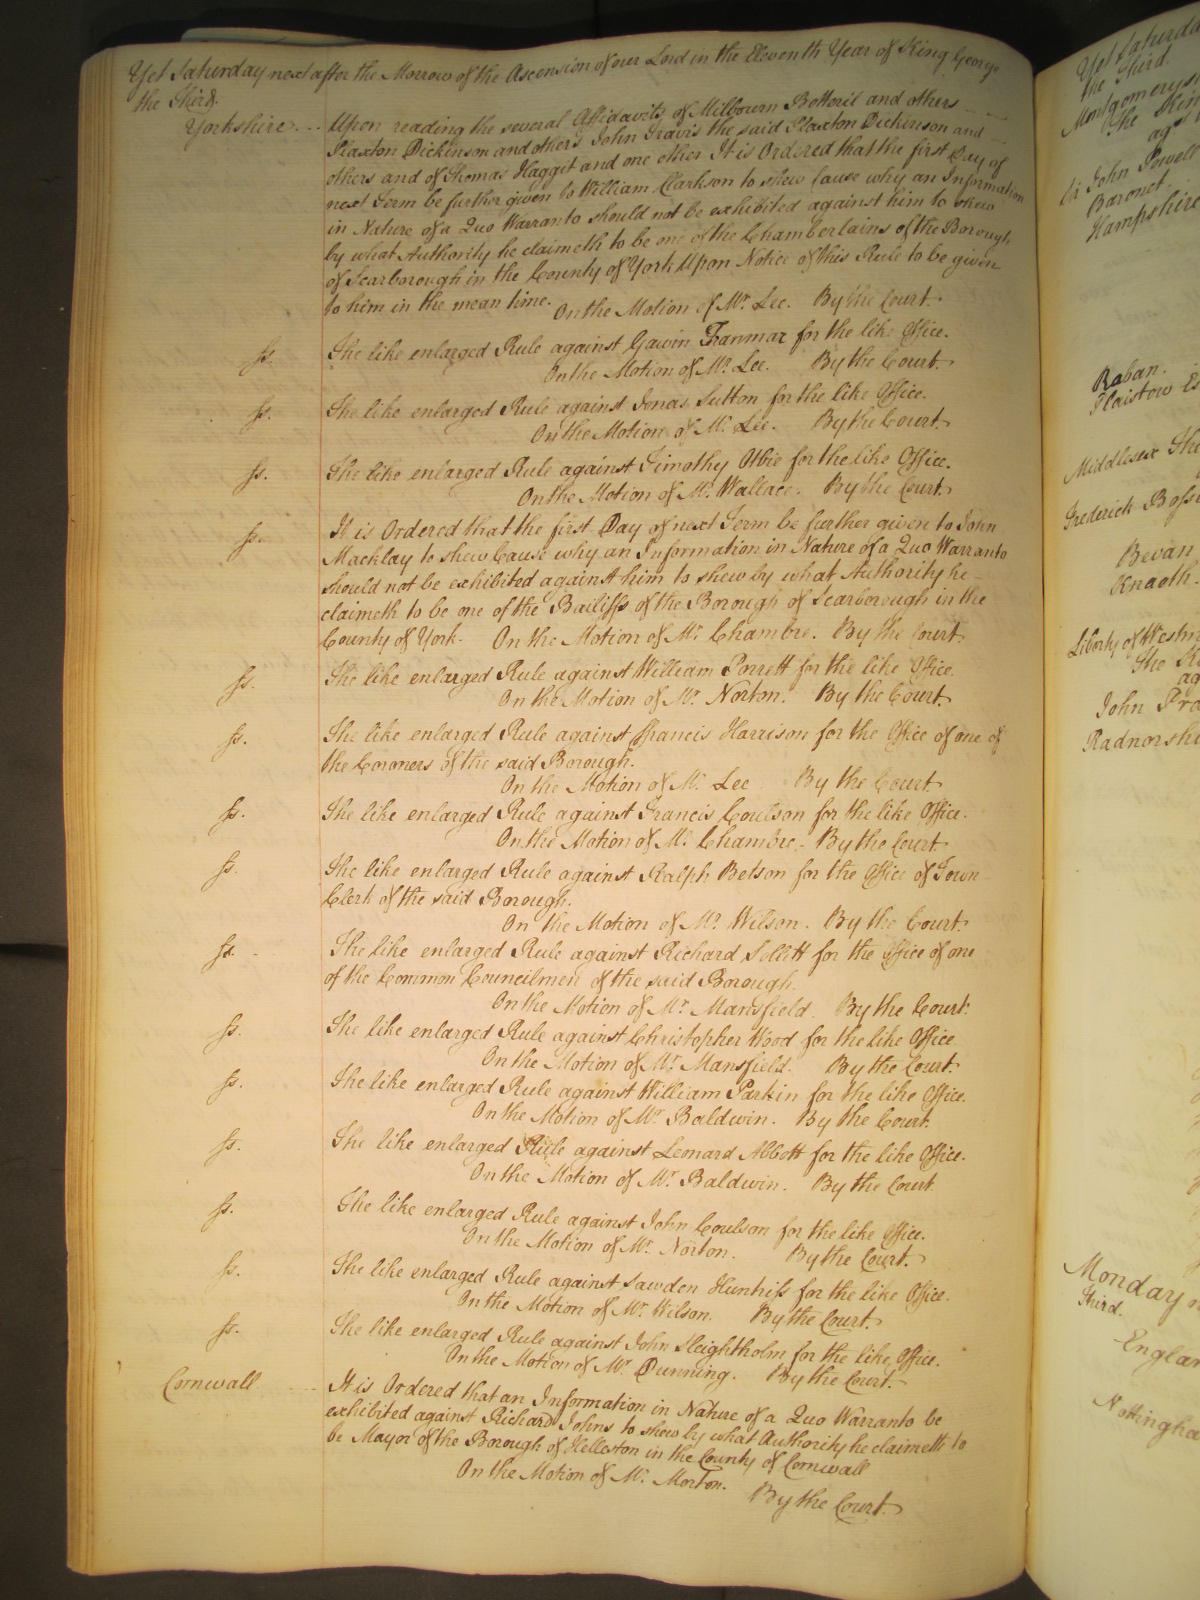 Yet Saturday next after the Morrow of the Ascension of our Lord in the Eleventh Year of King George
the Third.
Yorkshire... Upon reading the several Affidavits of Milbourn Botteril and others
Plaxton Dickinson and others John Travis the said Plaxton Dickinson and
others and of Thomas Haggit and one other It is Ordered that the first Day of
next Term be further given to William Clarkson to shew Cause why an Information
in Nature of a Quo Warranto should not be exhibited against him to shew
by what Authority he claimeth to be one of the Chamberlains of the Borough
of Scarborough in the County of York Upon Notice of this Rule to be given
to him in the mean time. On the Motion of Mr. Lee. By the Court.
ss. The like enlarged Rule against Gawin Tranmar for the like Office.
On the Motion of Mr. Lee. By the Court.
ss. The like enlarged Rule against Jonas Sutton for the like Office.
On the Motion of Mr. Lee. By the Court.
ss. The like enlarged Rule against Timothy Otbie for the like Office.
On the Motion of Mr. Wallace. By the Court.
ss. It is Ordered that the first Day of next Term be further given to John
Macklay to shew Cause why an Information in Nature of a Quo Warranto
should not be exhibited against him to shew by what Authority he
claimeth to be one of the Bailiffs of the Borough of Scarborough in the
County of York. On the Motion of Mr. Chambre. By the Court.
ss. The like enlarged Rule against William Porrett for the like Office.
On the Motion of Mr. Norton. By the Court.
ss. The like enlarged Rule against Francis Harrison for the Office of one of
the Coroners of the said Borough.
On the Motion of Mr. Lee By the Court
ss. The like enlarged Rule against Francis Coulson for the like Office.
On the Motion of Mr. Chambre. By the Court
ss. The like enlarged Rule against Ralph Betson for the Office of Town
Clerk of the said Borough.
On the Motion of Mr. Wilson. By the Court.
ss. The like enlarged Rule against Richard Sollitt for the Office of one
of the Common Councilmen of the said Borough.
On the Motion of Mr. Mansfield. By the Court.
ss. The like enlarged Rule against Christopher Wood for the like Office
On the Motion of Mr. Mansfield. By the Court.
ss. The like enlarged Rule against William Parkin for the like Office.
On the Motion of Mr. Baldwin. By the Court.
ss. The like enlarged Rule against Leonard Abbott for the like Office.
On the Motion of Mr. Baldwin. By the Court.
ss. The like enlarged Rule against John Coulson for the like Office.
On the Motion of Mr. Norton. By the Court.
ss. The like enlarged Rule against Sawden Huntriss for the like Office.
On the Motion of Mr. Wilson. By the Court.
ss. The like enlarged Rule against John Sleightholm for the like Office.
On the Motion of Mr. Dunning. By the Court.
Cornwall It is Ordered that an Information in Nature of a Quo Warranto be
exhibited against Richard Johns to shew by what Authority he claimeth to
be Mayor of the Borough of Helleston in the County of Cornwall
On the Motion of Mr. Morton.
By the Court.
Yet Saturda
the Third.
Montgomerysh
The Kin
agt
Sir John Powell
Baronet.
Hampshire
Raban.
Plaistow Es
Middlesex The
Frederick Boss
Bevan
Knaoth.
Liberty of Westm
The K
ag
John Pra
Radnorshi
Monday n
Third.
Englan
Nottingha